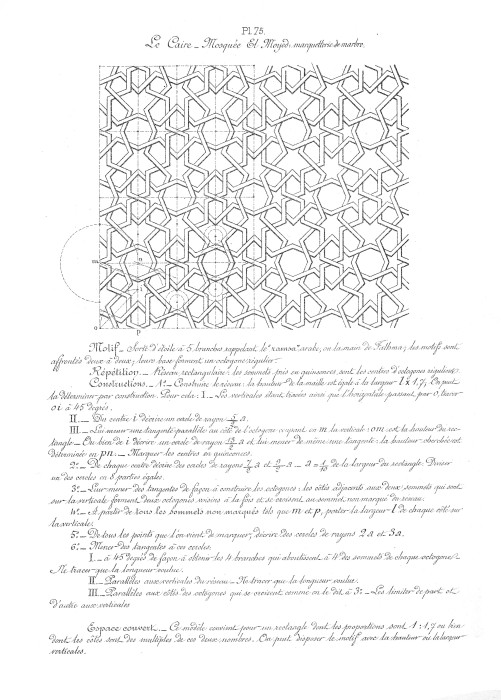 Pl. 75.
Le Caire _ Mosquée El Moyed, marquetterie de marbre.
m
n
i
o
p
Motif _ Sorte d'étoile à 5 branches rappelant le "xamsa" arabe, ou la main de Fathma; les motifs sont
affrontés deux à deux; leurs bases forment un octogone régulier.
Répétition _ Réseau rectangulaire; les sommets pris en quinconces sont les centres d'octogones réguliers.
Constructions _ 1º _ Construire le réseau; la hauteur de la maille est égale à la largeur l x 1,7. On peut
la déterminer par construction. Pour cela: I _ Les verticales étant tracées ainsi que l'horizontale passant par o, tracer
o i à 45 degrés.
II _ Du centre i décrire un cercle de rayon a.
III _ Lui mener une tangente parallèle au côté de l'octogone coupant en m la verticale: om est la hauteur du rec-
tangle _ Ou bien de i décrire un cercle de rayon a et lui mener de même une tangente; la hauteur cherchée est
déterminée en pn. _ Marquer les centres en quinconces.
2º _ De chaque centre décrire des cercles de rayons a et a _ a = de la largeur du rectangle. Diviser
un des cercles en 8 parties égales.
3º _ Leur mener des tangentes de façon à construire les octogones; les côtés adjacents aux deux sommets qui sont
sur la verticale forment deux octogones voisins à la fois et se croisent au sommet non marqué du réseau.
4º _ A partir de tous les sommets non marqués tels que m et p, porter la largeur l de chaque côté sur
la verticale.
5º _ De tous les points que l'on vient de marquer, décrire des cercles de rayons 2a et 3a.
6º _ Mener des tangentes à ces cercles.
I _ à 45 degrés de façon à obtenir les 4 branches qui aboutissent à 4 des sommets de chaque octogone _
Ne tracer que la longueur voulue.
II _ Parallèles aux verticales du réseau _ Ne tracer que la longueur voulue.
III _ Parallèles aux côtés des octogones qui se croisent comme on le dit à 3º _ Les limiter de part et
d'autre aux verticales
Espace couvert _ Ce modèle convient pour un rectangle dont les proportions sont 1 : 1,7 ou bien
dont les côtés sont des multiples de ces deux nombres. On peut disposer le motif avec la hauteur ou la largeur
verticales.